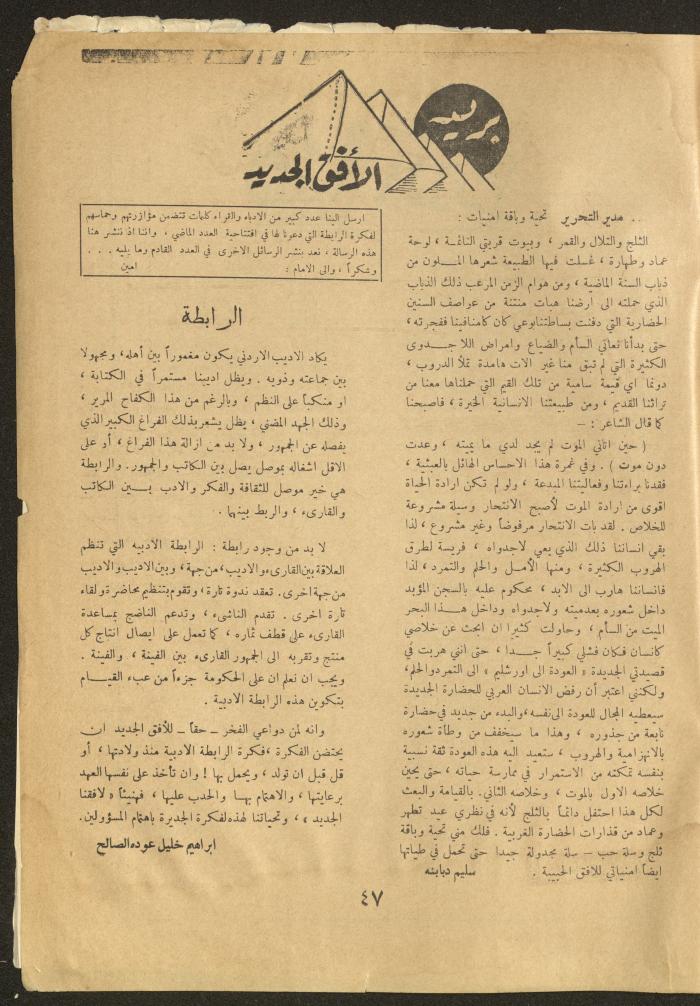 بريد
الأفق الجديد
.. مدير التحرير تحية وباقة امنيات :
الثلج والتلال والقمر ، وبيوت قريتي الناعمة ، لوحة
عماد وطهارة ، غسلت فيها الطبيعة شعرها الملون من
ذباب السنة الماضية ، ومن هوام الزمن المرعب ذلك الذباب
الذي حملته الى ارضنا هبات منتنة من عواصف السنين
الحضارية التي دفنت بساطتنا
حتى بدأنا نعاني السأم والضياع وامراض اللاجدوى
الكثيرة التي لم تبق منا غير الات هامدة تملأ الدروب ،
دونما اي قيمة سامية من تلك القيم التي حملناها معنا من
تراثنا القديم ، ومن طبيعتنا الانسانية الخيرة ، فاصبحنا
كما قال الشاعر : –
( حين اتاني الموت لم يجد لدي ما يميته ، وعدت
دون موت ) . وفي غمرة هذا الاحساس الهائل بالعبثية ،
فقدنا براءتنا وفعاليتنا المبدعة ، ولو لم تكن ارادة الحياة
اقوى من ارادة الموت لأصبح الانتحار وسيلة مشروعة
للخلاص . لقد بات الانتحار مرفوضاً وغير مشروع ، لذا
بقي انساننا ذلك الذي يعي لاجدواه ، فريسة لطرق
الهروب الكثيرة ، ومنها الأمل والحلم والتمرد ، لذا
فانساننا هارب الى الابد ، محكوم عليه بالسجن المؤبد
داخل شعوره بعدميته ولاجدواه وداخل هذا البحر
الميت من السأم ، وحاولت كثيرا ان ابحث عن خلاصي
كانسان فكان فشلي كبيراً جدا ، حتى انني هربت في
قصيدتي الجديدة « العودة الى اورشليم » الى التمرد والحلم،
ولكنني اعتبر أن رفض الانسان العربي للحضارة الجديدة
سيعطيه المجال للعودة الى نفسه، والبدء من جديد في حضارة
نابعة من جذوره ، وهذا ما سيخفف من وطأة شعوره
بالانهزامية والهروب ، ستعيد اليه هذه العودة ثقة نسبية
بنفسه تمكنه من الاستمرار في ممارسة حياته ، حتى يحين
خلاصه الاول بالموت ، وخلاصه الثاني. بالقيامة والبعث
لكل هذا احتفل دائماً بالثلج لأنه في نظري عيد تطهر
وعماد من قذارات الحضارة الغربية . فلك مني تحية وباقة
ثلج وسلة حب – سلة مجدولة جيدا حتى تحمل في طياتها
ايضاً امنياتي للافق الحبيبة .
سليم دبابنه
ارسل الينا عدد كبير من الادباء والقراء كلمات تتضمن مؤازرتهم وحماسهم
لفكرة الرابطة التي دعونا لها في افتتاحية العدد الماضي ، واننا اذ ننشر هنا
هذه الرسالة ، نعد بنشر الرسائل الاخرى في العدد القادم وما يليه . . .
وشكراً ، والى الامام :
امين
الرابطة
يكاد الاديب الاردني يكون مغموراً بين أهله، ومجهولا
بين جماعته وذويه . ويظل اديبنا مستمراً في الكتابة ،
او منكباً على النظم ، وبالرغم من هذا الكفاح المرير ،
وذلك الجهد المضني ، يظل يشعر بذلك الفراغ الكبير الذي
يفصله عن الجمهور ، ولا بد من ازالة هذا الفراغ ، أو على
الاقل اشغاله بموصل يصل بين الكاتب والجمهور. والرابطة
هي خير موصل للثقافة والفكر والادب بين الكاتب
والقارىء ، والربط بينهما .
لا بد من وجود رابطة : الرابطة الادبية التي تنظم
العلاقة بين القارىء والاديب، من جهة، وبين الاديب والاديب
من جهة اخرى. تعقد ندوة تارة ، وتقوم بتنظيم محاضرة ولقاء
تارة اخرى . تقدم الناشىء ، وتدعم الناضج بمساعدة
القارىء على قطف ثماره ، كما تعمل على ايصال انتاج كل
منتج وتقريبه الى الجمهور القارىء بين الفينة ، والفينة .
ويجب ان نعلم ان على الحكومة جزءاً من عبء القيام
بتكوين هذه الرابطة الادبية .
وانه لمن دواعي الفخر – حقاً – للأفق الجديد ان
يحتضن الفكرة ، فكرة الرابطة الادبية منذ ولادتها ، أو
قل قبل ان تولد ، ويحمل بها ! وان تأخذ على نفسها العهد
برعايتها ، والاهتام بها والحدب عليها ، فهنيئاً « لافقنا
الجديد » ، وتحياتنا لهذه لفكرة الجديرة باهتام المسؤولين.
ابراهيم خليل عوده الصالح
٤٧